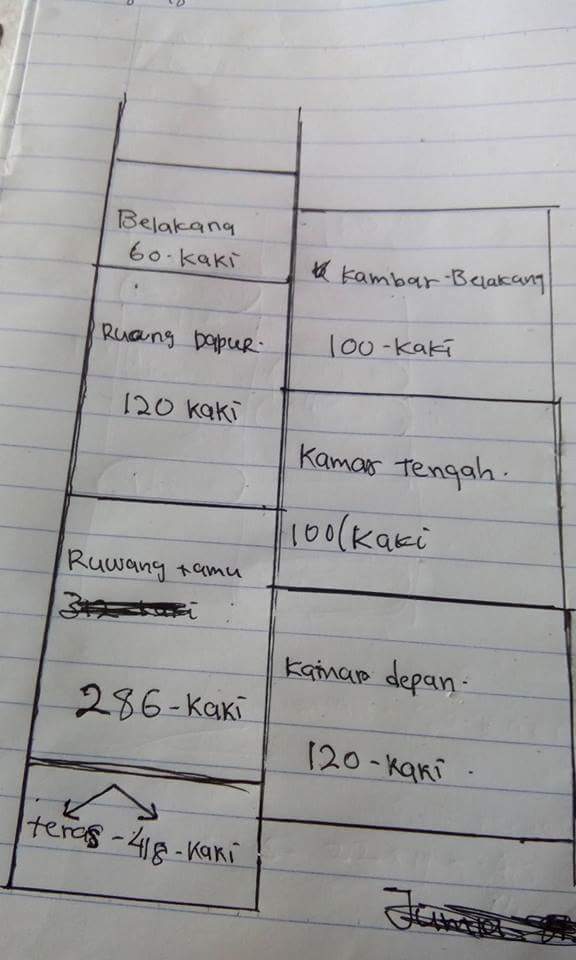 Belakang
60-kaki
Kambar-Belakang
100-kaki
Ruang Dapur.
120 kaki
Kamar tengah.
100 (kaki
Ruwang tamu
286-kaki
Kamar depan.
120-kaki.
teras-48-kaki